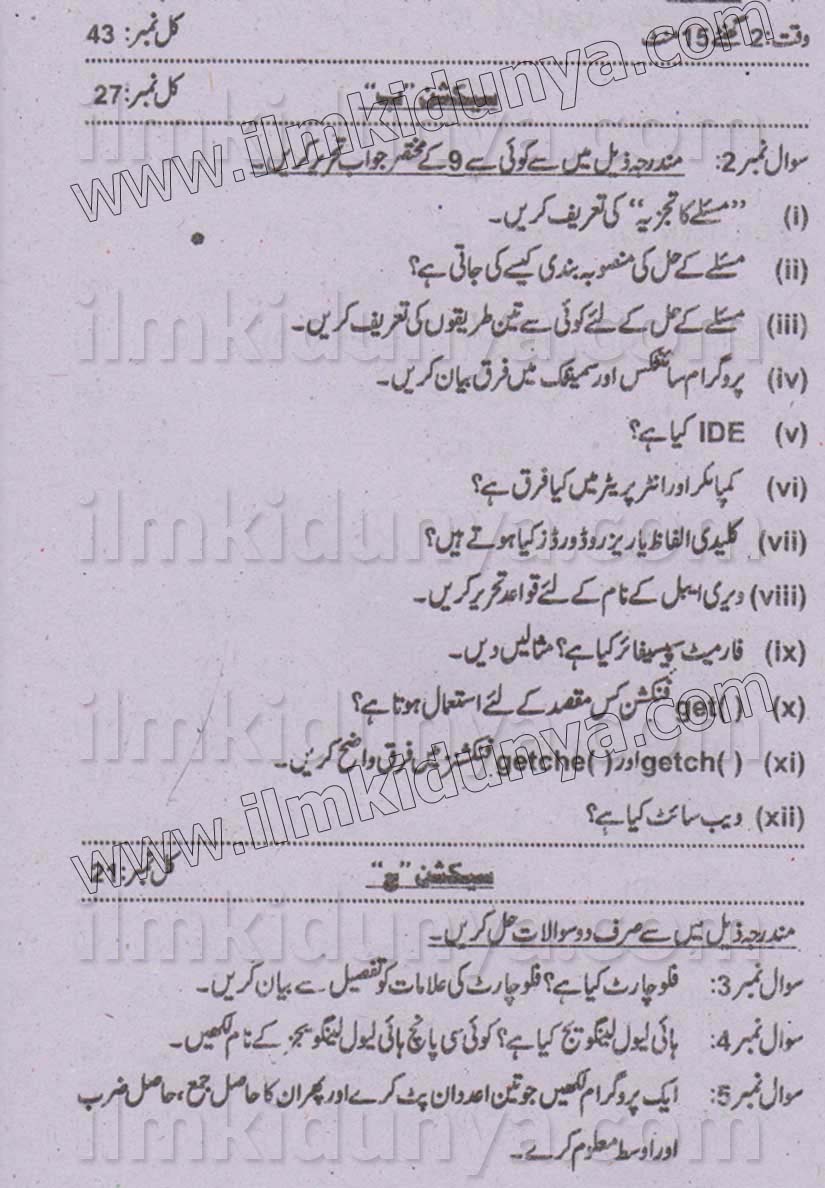 وقت: 2 گھنٹے 15 منٹ کل نمبر: 43
سیکشن "ب" کل نمبر: 27
سوال نمبر 2: مندرجہ ذیل میں سے کوئی سے 9 کے مختصر جواب تحریر کریں۔
(i) "مسئلے کا تجزیہ" کی تعریف کریں۔
(ii) مسئلے کے حل کی منصوبہ بندی کیسے کی جاتی ہے؟
(iii) مسئلے کے حل کے لئے کوئی سے تین طریقوں کی تعریف کریں۔
(iv) پروگرام سائنٹکس اور سمینٹک میں فرق بیان کریں۔
(v) IDE کیا ہے؟
(vi) کمپائلر اور انٹرپریٹر میں کیا فرق ہے؟
(vii) کلیدی الفاظ یا ریزروڈ ورڈز کیا ہوتے ہیں؟
(viii) ویری ایبل کے نام کے لئے قواعد تحریر کریں۔
(ix) فارمیٹ سپیسیفائر کیا ہے؟ مثالیں دیں۔
(x) get( ) فنکشن کس مقصد کے لئے استعمال ہوتا ہے؟
(xi) getch( ) اور getche( ) فنکشنز میں فرق واضح کریں۔
(xii) ویب سائٹ کیا ہے؟
سیکشن "ج" کل نمبر:
مندرجہ ذیل میں سے صرف دو سوالات حل کریں۔
سوال نمبر 3: فلو چارٹ کیا ہے؟ فلو چارٹ کی علامات کو تفصیل سے بیان کریں۔
سوال نمبر 4: ہائی لیول لینگویج کیا ہے؟ کوئی سی پانچ ہائی لیول لینگویجز کے نام لکھیں۔
سوال نمبر 5: ایک پروگرام لکھیں جو تین اعداد ان پٹ کرے اور پھر ان کا حاصل جمع، حاصل ضرب
اور اوسط معلوم کرے۔
www.ilmkidunya.com
www.ilmkidunya.com
ilmkidunya.com
ilmkidunya.com
ilmkidunya.com
ilmkidunya.com
ilmkidunya.com
ilmkidunya.com